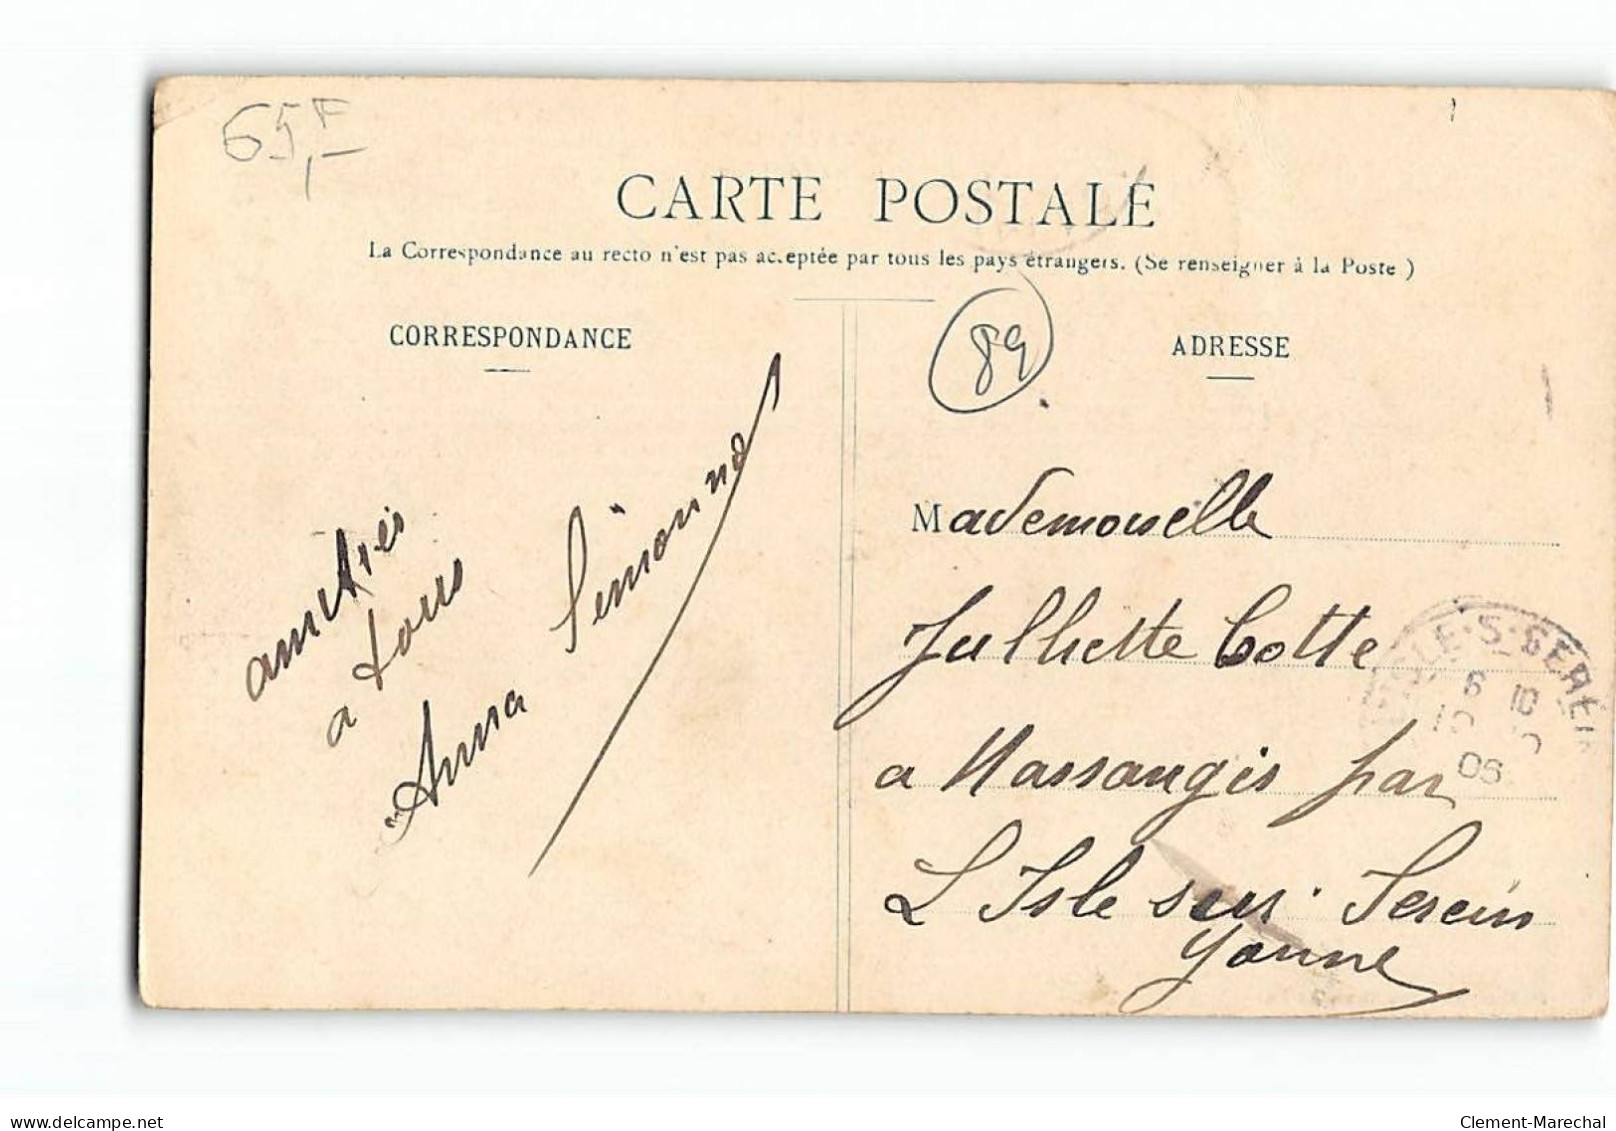 65F
CARTE POSTALE
La Correspondance au recto n'est pas acceptée par tous les pays étrangers. (Se renseigner à la Poste)
CORRESPONDANCE
ADRESSE
89
amitiés
a tous
Anna Simonne
Mademoiselle
Julliette Cotte
a Massangis par
L'Isle sur Serein
Yonne
L'ISLE-S-SEREIN
6 10
10
06
delcampe.net
Clement-Marechal